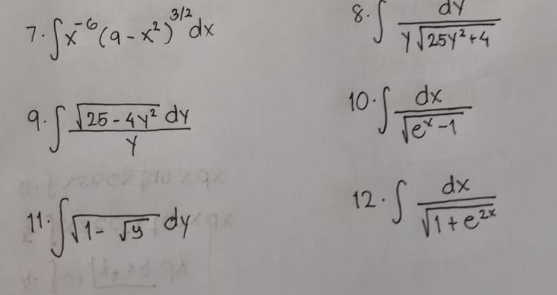 7. ∫x⁻⁶(9 - x²)^3/2 dx
8. ∫ dy / y√(25y²+4)
9. ∫ √(25-4y²) dy / y
10. ∫ dx / √(eˣ-1)
11. ∫√(1-√y) dy
12. ∫ dx / √(1+e²ˣ)